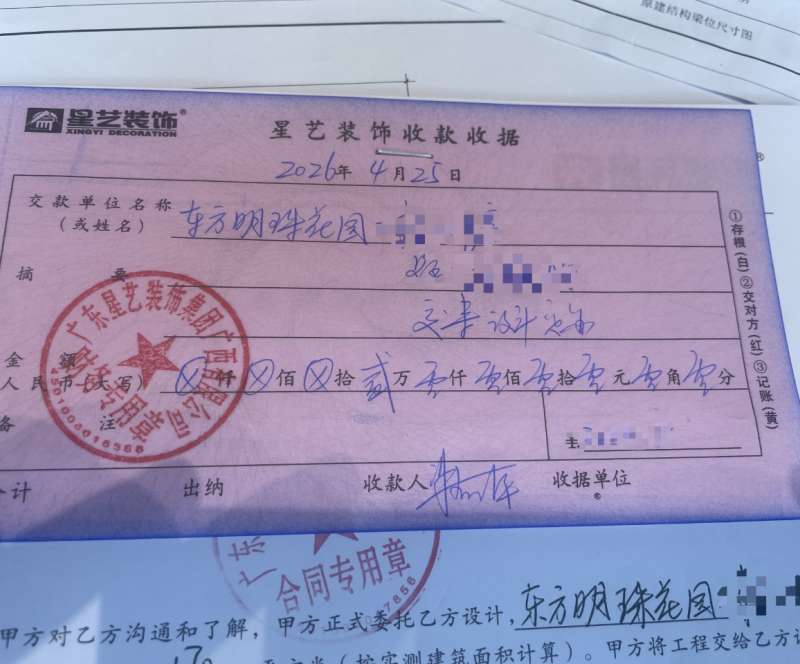 原建结构梁位尺寸图
星艺装饰®
XINGYI DECORATION
星艺装饰收款收据
2026年4月25日
交款单位名称
(或姓名)
东方明珠花园
摘要
交来设计定金
金额
人民币(大写)
ⓧ仟ⓧ佰ⓧ拾贰万零仟零佰零拾零元零角零分
备注
合计
出纳
收款人
收据单位
①存根(白)②交对方(红)③记账(黄)
广东星艺装饰集团广西有限公司
专用章
4501008016566
合同专用章
甲方对乙方沟通和了解，甲方正式委托乙方设计，东方明珠花园
平方米(按实测建筑面积计算)。甲方将工程交给乙方